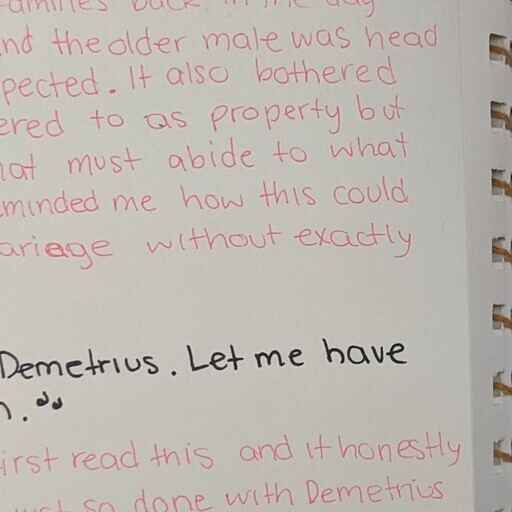 back in the day
the older male was head
It also bothered
to as property but
must abide to what
me how this could
without exactly
Demetrius. Let me have
."
read this and it honestly
so done with Demetrius